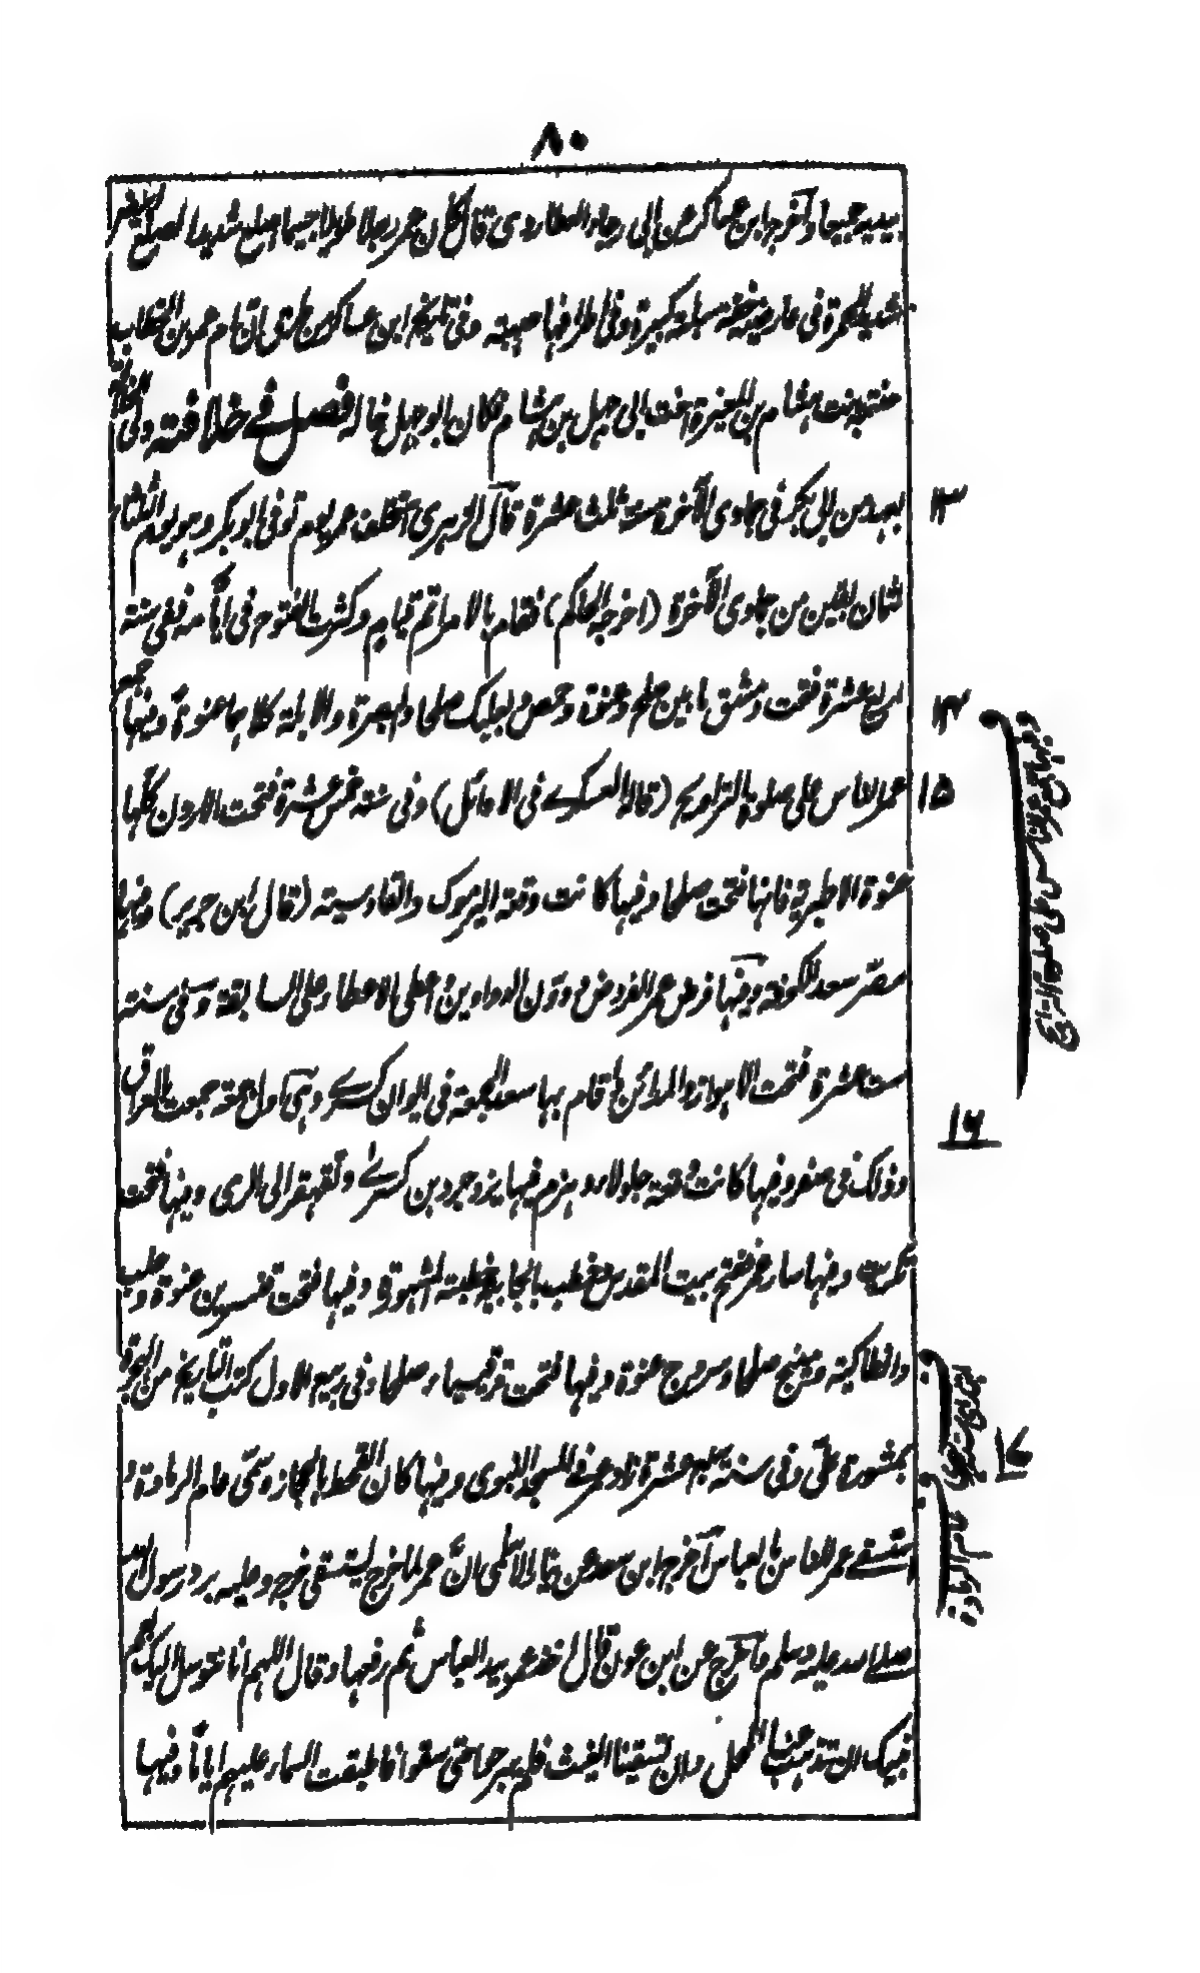 ٨٠
بيديه جميعا وأخرج ابن عساكر عن ابى رجاء العطاردى قال كان عمر رجلا طويلا جسيما اصلع شديد الصلع ابيض
شديد الحمرة فى عارضيه خفة سبلته كبيرة وفى اطرافها صهبة وفى تاريخ ابن عساكر من طرق ان ام عمر بن الخطاب
حنتمة بنت هشام بن المغيرة اخت ابى جهل بن هشام فكان ابو جهل خاله فصل فے خلافته ولى الخلافة
بعهد من ابى بكر فى جمادى الآخرة سنة ثلث عشرة قال الزهرى استخلف عمر يوم توفى ابو بكر وهو يوم الثلثاء
لثمان بقين من جمادى الآخرة (اخرجه الحاكم) فقام بالامر اتم قيام وكثرت الفتوح فى ايامه ففى سنة
اربع عشرة فتحت دمشق ما بين صلح وعنوة وحمص وبعلبك صلحا والبصرة والابلة كلاهما عنوة وفيها جمع
عمر الناس على صلوة التراويح (قاله العسكرے فى الاوائل) وفى سنة خمس عشرة فتحت الاردن كلها
عنوة الا طبرية فانها فتحت صلحا وفيها كانت وقعة اليرموك والقادسية (قال ابن جرير) وفيها
مصر سعد الكوفة وفيها فرض عمر الفروض ودون الدواوين واعطى الاعطاء على السابقة وفى سنة
ست عشرة فتحت الاهواز والمدائن واقام بها سعد الجمعة فى ايوان كسرے وهى اول جمعة جمعت بالعراق
وذلك فى صفر وفيها كانت وقعة جلولاء وهزم فيها يزدجرد بن كسرے وتقهقر الى الرى وفيها فتحت
تكريت وفيها سار عمر ففتح بيت المقدس وخطب بالجابية خطبته المشهورة وفيها فتحت قنسرين عنوة وحلب
وانطاكية ومنبج صلحا وسروج عنوة وفيها فتحت قرقيسياء صلحا وفى ربيع الاول كتب التاريخ من الهجرة
بمشورة على وفى سنة سبع عشرة زاد عمر فے المسجد النبوى وفيها كان القحط بالحجاز وسمى عام الرمادة و
استسقے عمر للناس بالعباس أخرج ابن سعد عن نيار الاسلمى ان عمر لما خرج يستسقى خرج وعليه برد رسول الله
صلے الله عليه وسلم وأخرج عن ابن عون قال اخذ عمر بيد العباس ثم رفعها وقال اللهم انا نتوسل اليك بعم
نبيك ان تذهب عنا المحل وان تسقينا الغيث فلم يبرحوا حتى سقوا فاطبقت السماء عليهم اياما وفيها
١٣
١٤
وفيها جمع عمر الناس على صلوة التراويح
١٥
١٦
١٧
عام الرمادة